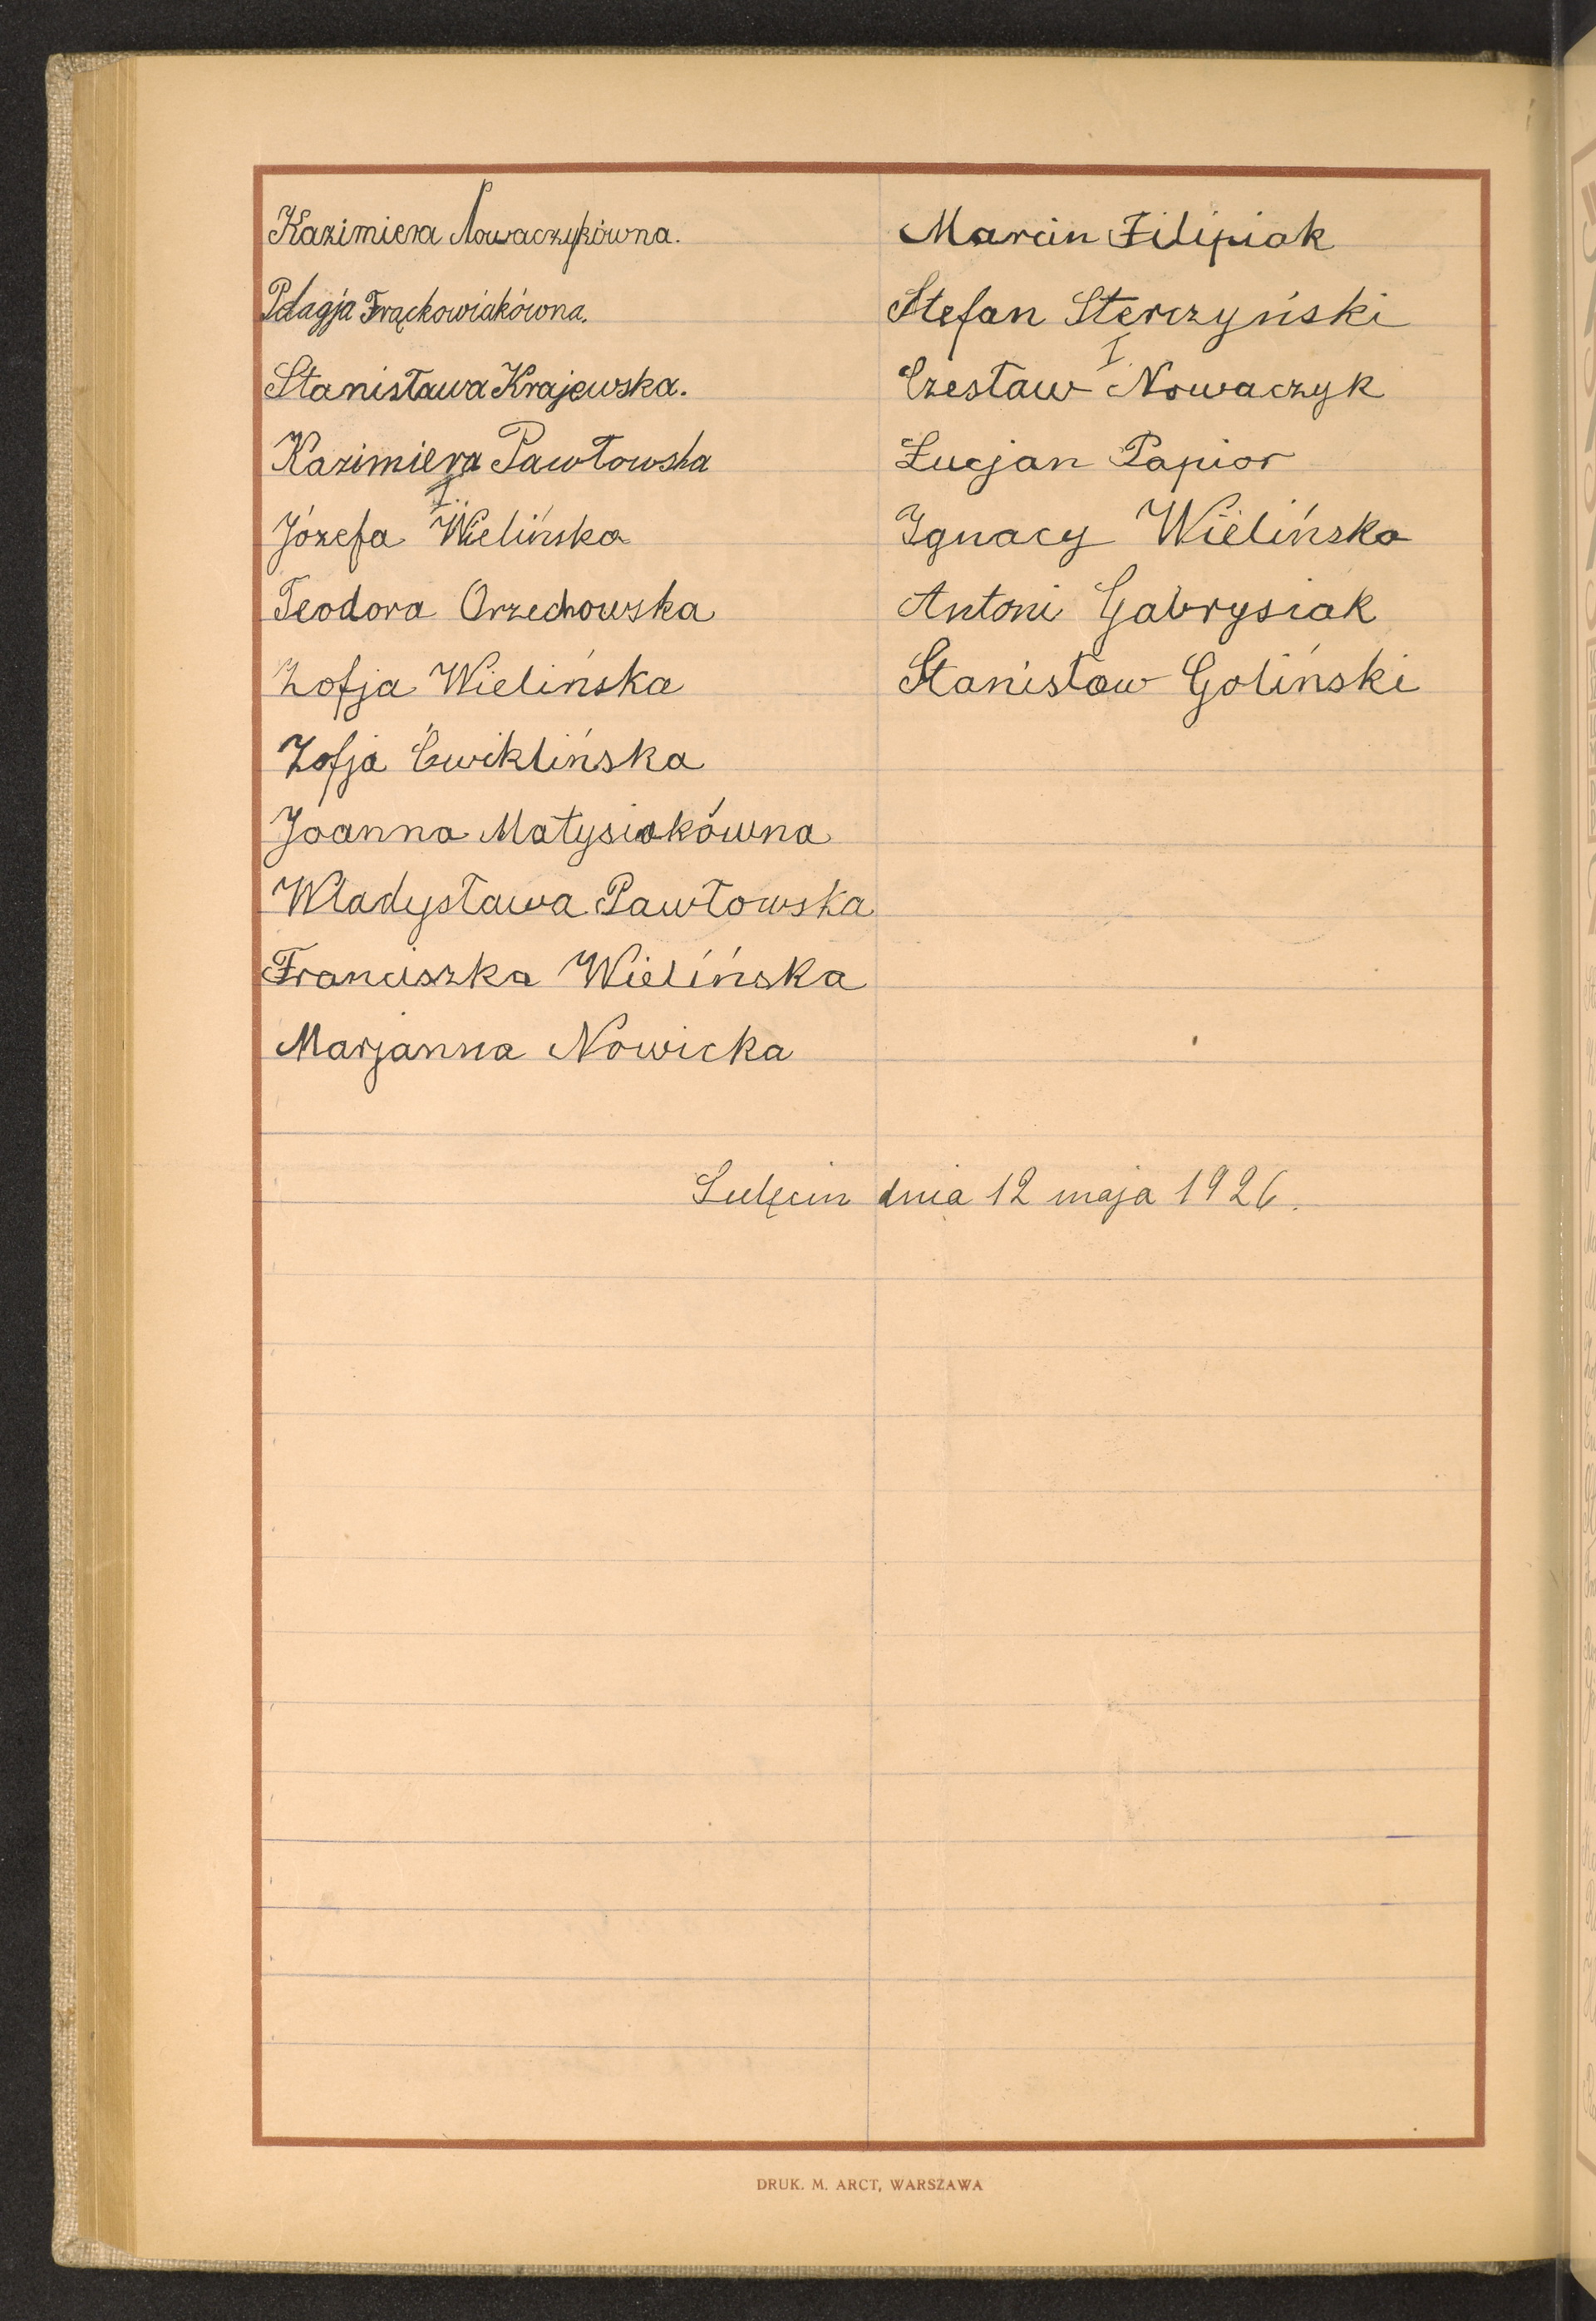 Kazimiera Nowaczykówna.
Pelagja Frąckowiakówna.
Stanisława Krajewska.
Kazimiera Pawłowska
I
Józefa Wielińska
Teodora Orzechowska
Zofja Wielińska
Zofja Ćwiklińska
Joanna Matysiakówna
Władysława Pawłowska
Franciszka Wielińska
Marjanna Nowicka
Marcin Filipiak
Stefan Sterczyński
I
Czesław Nowaczyk
Łucjan Papior
Ignacy Wielińska
Antoni Gabrysiak
Stanisław Goliński
Sulęcin dnia 12 maja 1926.
DRUK. M. ARCT, WARSZAWA